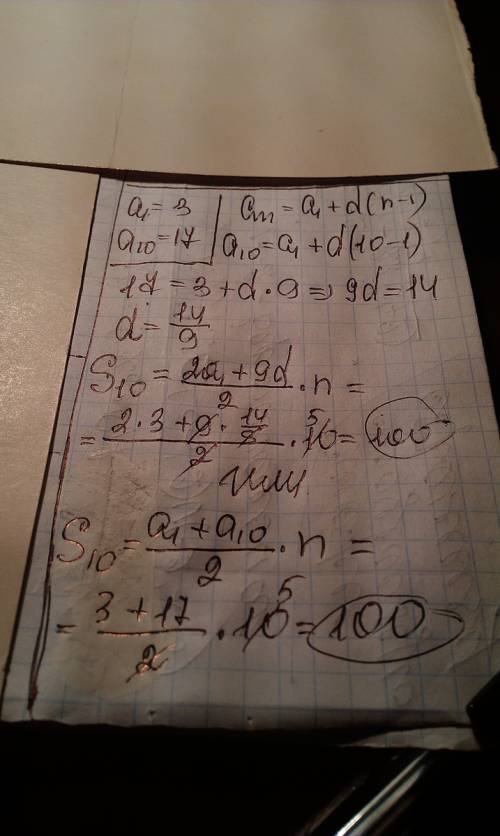 a₁ = 3 | aₙ = a₁ + d(n-1)
a₁₀ = 17 | a₁₀ = a₁ + d(10-1)
17 = 3 + d · 9 ⇒ 9d = 14
d = 14/9
S₁₀ = (2a₁ + 9d)/2 · n =
= (2 · 3 + 9 · 14/9)/2 · 10 5 = 100
или
S₁₀ = (a₁ + a₁₀)/2 · n =
= (3 + 17)/2 · 10 5 = 100